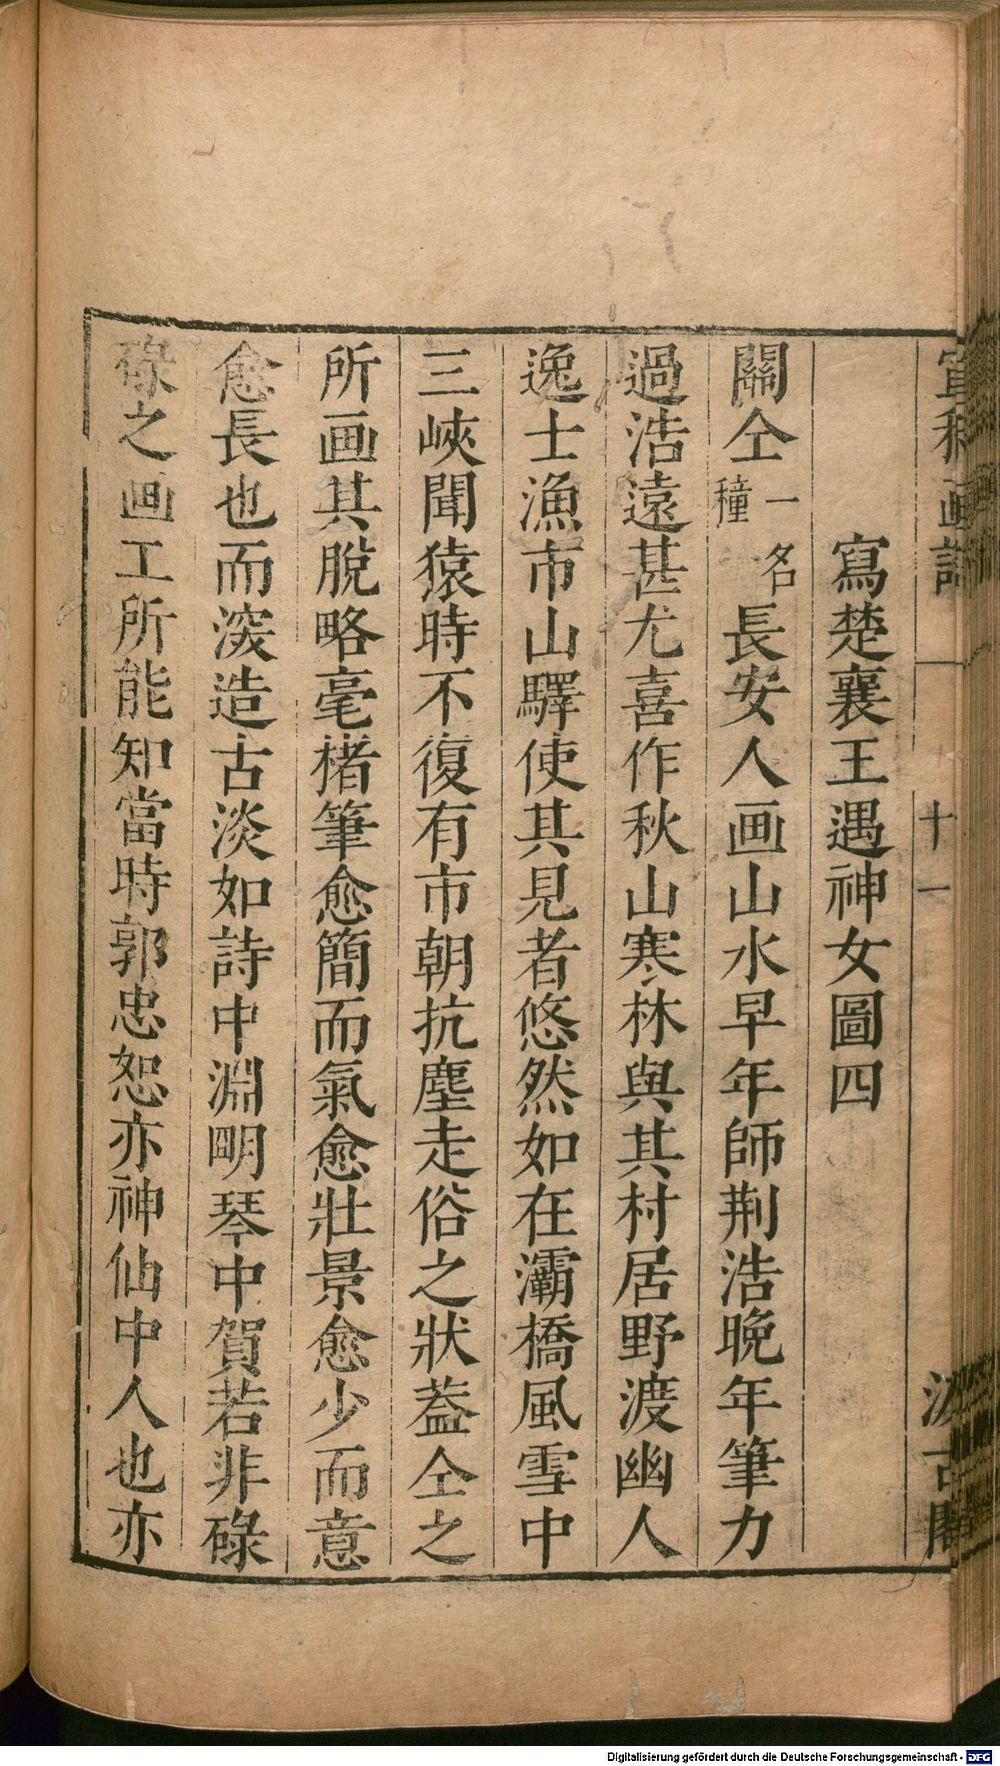 宣和画譜 十一 汲古閣
寫楚襄王遇神女圖四
關仝一名穜長安人画山水早年師荆浩晚年筆力
過浩遠甚尤喜作秋山寒林與其村居野渡幽人
逸士漁市山驛使其見者悠然如在灞橋風雪中
三峽聞猿時不復有市朝抗塵走俗之狀葢仝之
所画其脫略毫楮筆愈簡而氣愈壯景愈少而意
愈長也而深造古淡如詩中淵明琴中賀若非碌
碌之画工所能知當時郭忠恕亦神仙中人也亦
Digitalisierung gefördert durch die Deutsche Forschungsgemeinschaft - DFG